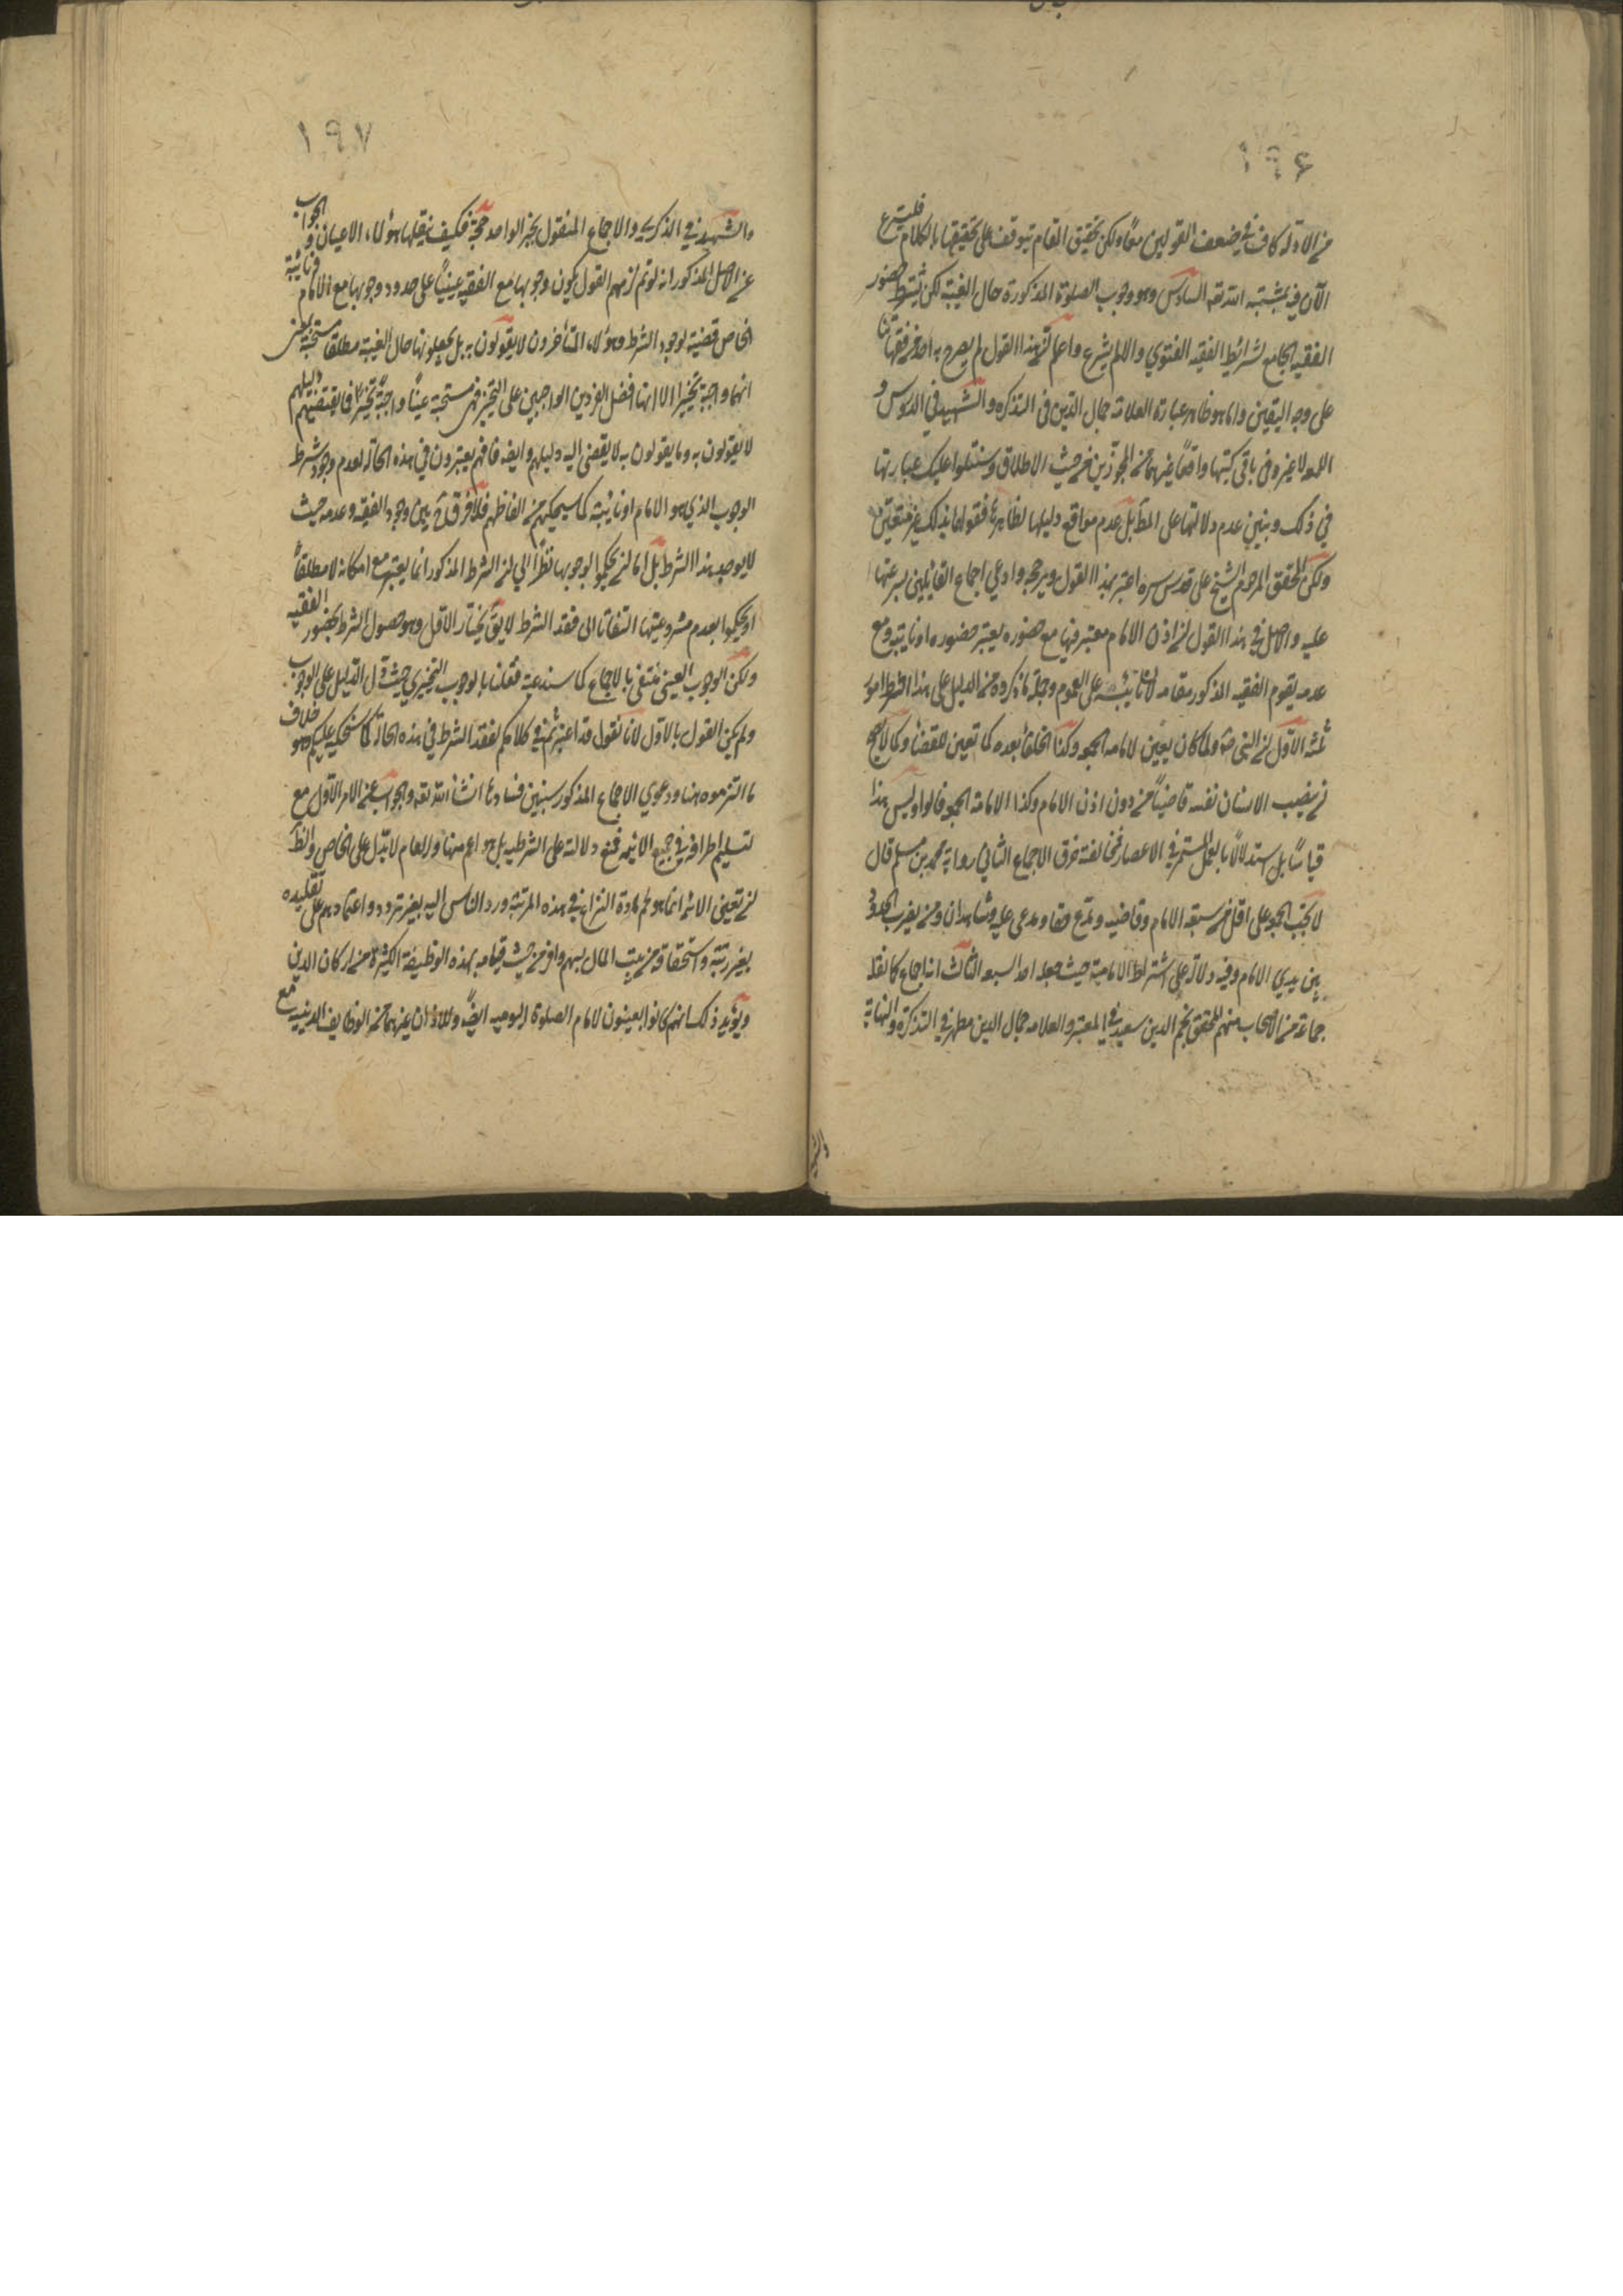 ١٩۶
من الادلة كاف في ضعف القولين معا ولكن تحقيق المقام يتوقف على تحقيقها بالكلام فليشرع
الآن فيه بمشية الله تعه السادس وهو وجوب الصلوة المذكورة حال الغيبة لكن بشرط حضور
الفقيه الجامع لشرائط الفقيه الفتوي والا لم يشرع واعلم ان هذا القول لم يصرح به احد من فقهائنا
على وجه اليقين وانما هو ظاهر عبارة العلامة جمال الدين في التذكره والشهيد في الدروس و
اللمعه لا غير وفي باقي كتبهما وافقا غيرهما من المجوزين من حيث الاطلاق وسنتلوا عليك عبارتهما
في ذلك ونبين عدم دلالتهما على المط بل عدم مواقع دليلهما لظاهرها فقولهما بذلك غير متعين
ولكن المحقق المرحوم الشيخ على قدس سره اعتبر هذا القول ورجحه وادعي اجماع القائلين بشرعيتها
عليه والاصل في هذا القول ان اذن الامام معتبر فيها مع حضوره يعتبر حضوره او نائبه ومع
عدمه يقوم الفقيه المذكور مقامه لانه نائبه على العموم وجملة ما ذكروه من الدليل على هذا الشرط امور
ثلثة الاول ان النبي ص كان يعين لامامه الجمعه وكذا الخلفا بعده كما تعين للقضا وكما لا يصح
ان ينصب الانسان نفسه قاضيا من دون اذن الامام وكذا الامامة الجمعه قالوا وليس هذا
قياسا بل استدلالا بالعمل المستمر في الاعصار فمخالفته خرق الاجماع الثاني رواية محمد بن مسلم قال
لا تجب الجمعه على اقل من سبعة الامام وقاضيه ومدع حقا ومدعى عليه وشاهدان ومن يضرب الحدود
بين يدي الامام وفيه دلالة على اشتراط الامامية حيث جعله احد السبعه الثالث انه اجماع كما نقله
جماعة من الاصحاب منهم المحقق نجم الدين سعيد في المعتبر والعلامه جمال الدين مطهر في التذكرة والنهاية
١٩٧
والشهيد في الذكرى والاجماع المنقول بخبر الواحد حجة فكيف بنقلها هؤلاء الاعيان والجواب
عن الاصل المذكور انه لو تم لزمهم القول بكون وجوبها مع الفقيه عينيا على حدود وجوبها مع الامام ونائبه
الخاص قضية لوجود الشرط وهؤلاء المتأخرون لا يقولون به بل يجعلونها حال الغيبة مطلقا مستحبة بمعنى
انها واجبة تخييرا الا انها افضل الفردين الواجبين على التخيير فهي مستحبة عينا واجبة تخييرا فما يقتضيه دليلهم
لا يقولون به وما يقولون به لا يفضي اليه دليلهم وايضه فانهم يعتبرون في هذه الحالة لعدم وجود شرط
الوجوب الذي هو الامام او نائبه كما سيحكيهم من الفاظهم فلا فرق ح بين وجود الفقيه وعدمه حيث
لا يوجد هذا الشرط بل اما ان يحكموا لوجوبها نظرا الي ان الشرط المذكور انما يعتبر مع امكانه لا مطلقا
او يحكموا بعدم مشروعيتها التفاتا الى فقد الشرط لا يق يختار الاقل وهو حصول الشرط بحضور الفقيه
ولكن الوجوب العيني منتفي بالاجماع كما سندعيه فقلنا بالوجوب التخييري حيث دل الدليل على الوجوب
ولم يكن القول بالاول لانا نقول قد اعتبرتم في كلامكم لفقد الشرط في هذه الحالة كما سنحكيه عليكم وهو خلاف
ما التزموه هنا ودعوي الاجماع المذكور سنبين فسادها انشا الله تعه والجواب عن الامر الاول مع
تسليم اطرافه في جميع الائمه فمنع دلالته على الشرطيه بل هو اعم منها والعام لا يدل على الخاص والظ
ان تعيين الائمة انما هو لحم مادة النزاع في هذه المرتبه ورد الناس اليه بغير تردد واعتمادهم على تقليده
بغير رتبته واستحقاقه من بيت المال بسهم وافر من حيث قيامه بهذه الوظيفة الكثيرة من اركان الدين
ويؤيد ذلك انهم كانوا يعينون لامام الصلوة اليوميه ايضا وللاذان غيرهما من الوظايف الدينيه مع